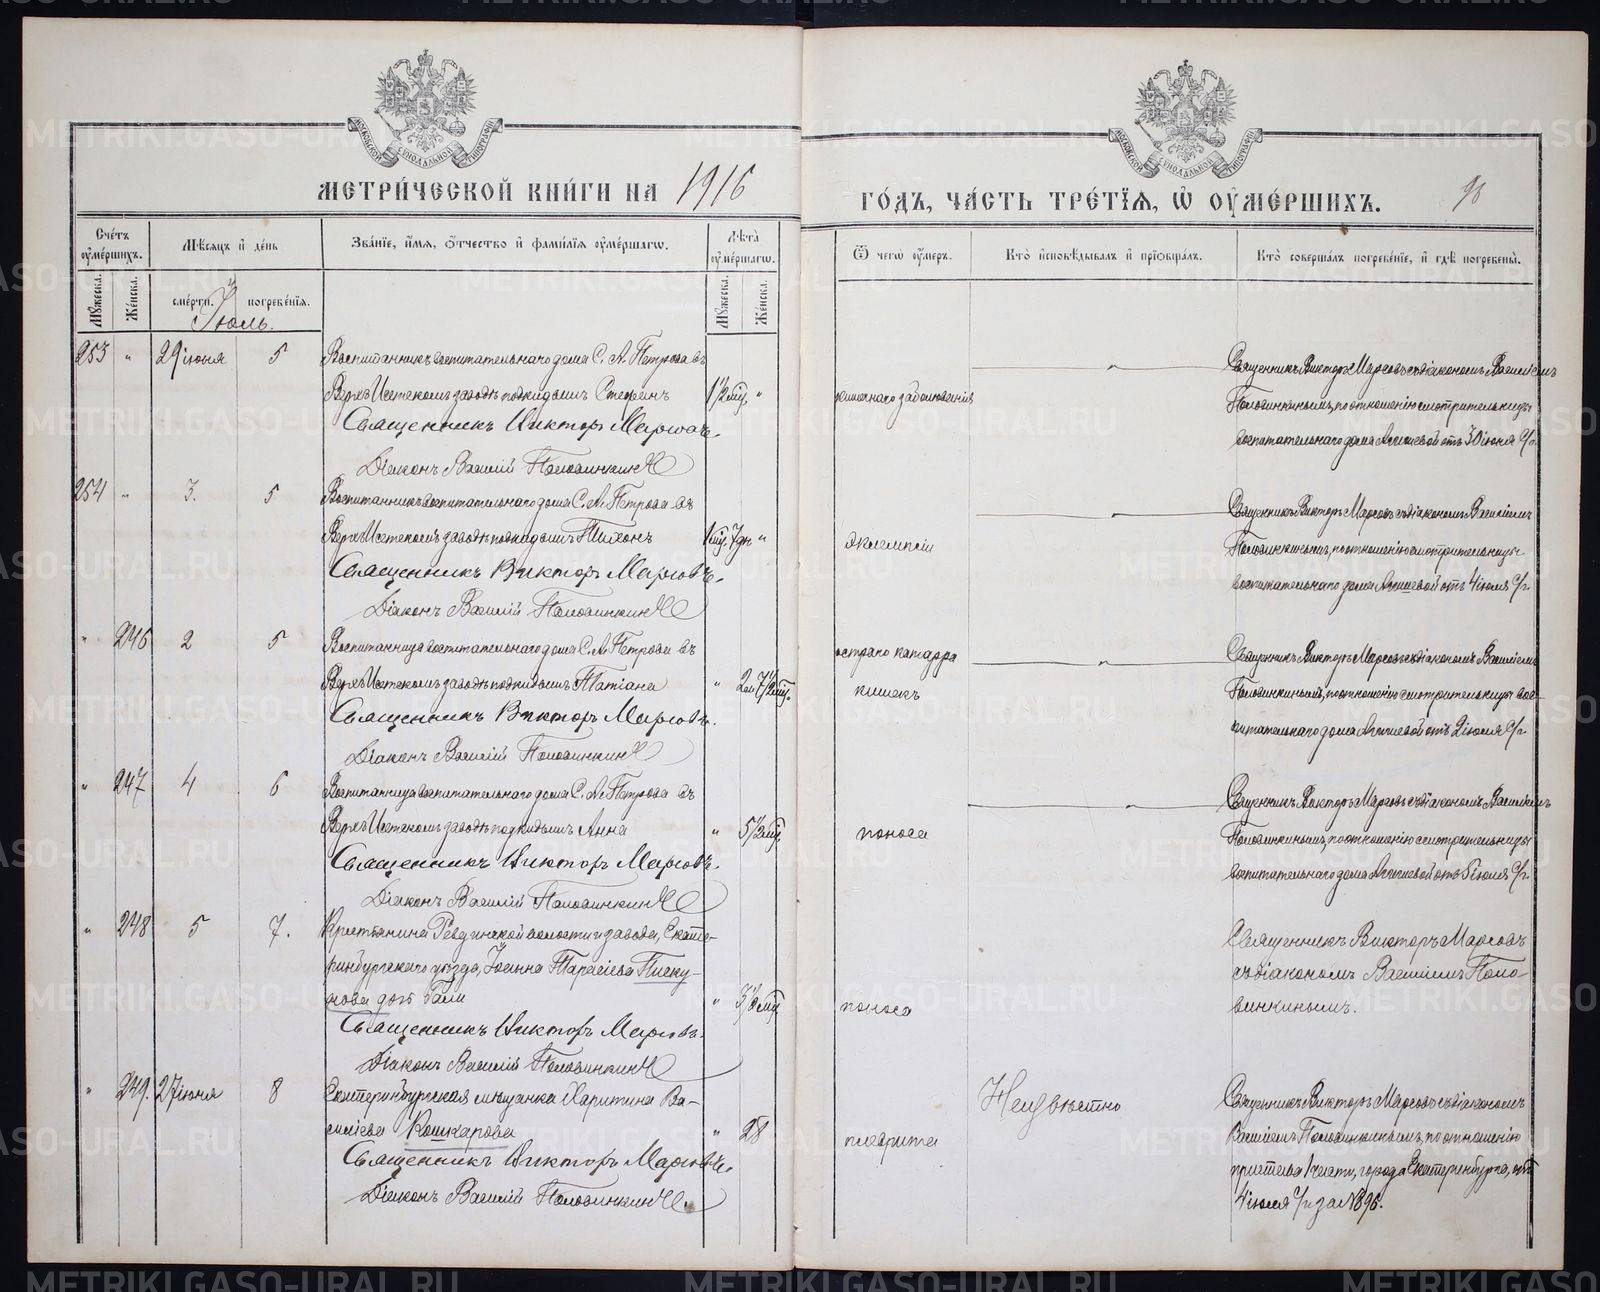 МЕТРИ́ЧЕСКОЙ КНИ́ГИ НА 1916
ГО́ДЪ, ЧА́СТЬ ТРЕ́ТЇѦ, Ѽ ОУМЕ́РШИХЪ.
Сче́тъ оуме́ршихъ.
Мѣ́сяцъ и де́нь
Зва́нїе, и́мѧ, о́тчество и фамилїѧ оуме́ршагѡ.
Лѣта̀ оуме́ршагѡ.
Ѿ чегѡ̀ оу́меръ.
Кто̀ исповѣ́дывалъ и прїобща́лъ.
Кто̀ соверша́лъ погребе́нїе, и гдѣ̀ погребены̀.
Мужеска. Же́нска.
сме́рти. погребе́нїѧ.
Мужеска. Же́нска.
Іюль.
253 " 29 іюня 5 Воспитанникъ воспитательнаго дома С. А. Петрова въ
Верхъ Исетскомъ заводѣ подкидышъ Стефанъ 1½ мѣс. "
Священникъ Викторъ Марсовъ.
Діаконъ Василій Половинкин
кишечнаго заболѣванія
Священникъ Викторъ Марсовъ съ діакономъ Василіемъ
Половинкинымъ, по отношенію смотрительницы
воспитательнаго дома отъ 30 іюня с/г.
254 " 3. 5 Воспитанникъ воспитательнаго дома С. А. Петрова въ
Верхъ Исетскомъ заводѣ подкидышъ Тихонъ 1 мѣс. 7 дн "
Священникъ Викторъ Марсовъ.
Діаконъ Василій Половинкин
эклампсіи
Священникъ Викторъ Марсовъ съ діакономъ Василіемъ
Половинкинымъ, по отношенію смотрительницы
воспитательнаго дома отъ 4 іюля с/г.
" 246 2 5 Воспитанница воспитательнаго дома С. А. Петрова въ
Верхъ Исетскомъ заводѣ подкидышъ Татіана " 7½ мѣс.
Священникъ Викторъ Марсовъ.
Діаконъ Василій Половинкин
остраго катарра
кишекъ
Священникъ Викторъ Марсовъ съ діакономъ Василіемъ
Половинкинымъ, по отношенію смотрительницы вос-
питательнаго дома отъ 2 іюля с/г.
" 247 4 6 Воспитанница воспитательнаго дома С. А. Петрова въ
Верхъ Исетскомъ заводѣ подкидышъ Анна " 5½ мѣс.
Священникъ Викторъ Марсовъ.
Діаконъ Василій Половинкин
поноса
Священникъ Викторъ Марсовъ съ діакономъ Василіемъ
Половинкинымъ, по отношенію смотрительницы
воспитательнаго дома отъ 5 іюля с/г.
" 248 5 7. Крестьянина Ревдинской волости и завода, Екате-
ринбургскаго уѣзда, Іоанна Тарасіева Писку-
нова дочь " 3½ мѣс.
Священникъ Викторъ Марсовъ.
Діаконъ Василій Половинкин
поноса
Священникъ Викторъ Марсовъ
съ діакономъ Василіемъ Поло-
винкинымъ.
" 249. 27 іюня 8 Екатеринбургская мѣщанка Харитина Ва-
силіева Кошкарова " 28
Священникъ Викторъ Марсовъ.
Діаконъ Василій Половинкин
плеврита
Неизвѣстно
Священникъ Викторъ Марсовъ съ діакономъ
Василіемъ Половинкинымъ, по отношенію
пристава 1 части, города Екатеринбурга, отъ
4 іюля с/г за №
METRIKI.GASO-URAL.RU